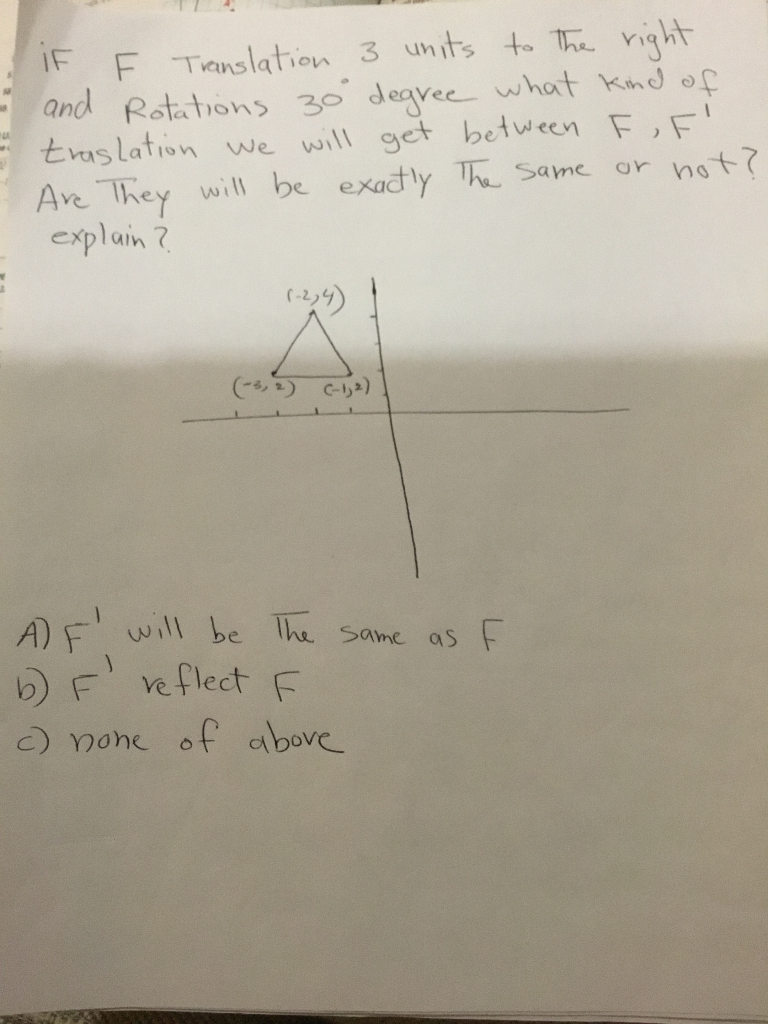 iF F Translation 3 units to The right
and Rotations 30° degree what kind of
traslation we will get between F, F'
Are They will be exactly The same or not?
explain?
(-2,4)
(-3,2) (-1,2)
A) F' will be The same as F
b) F' reflect F
c) none of above